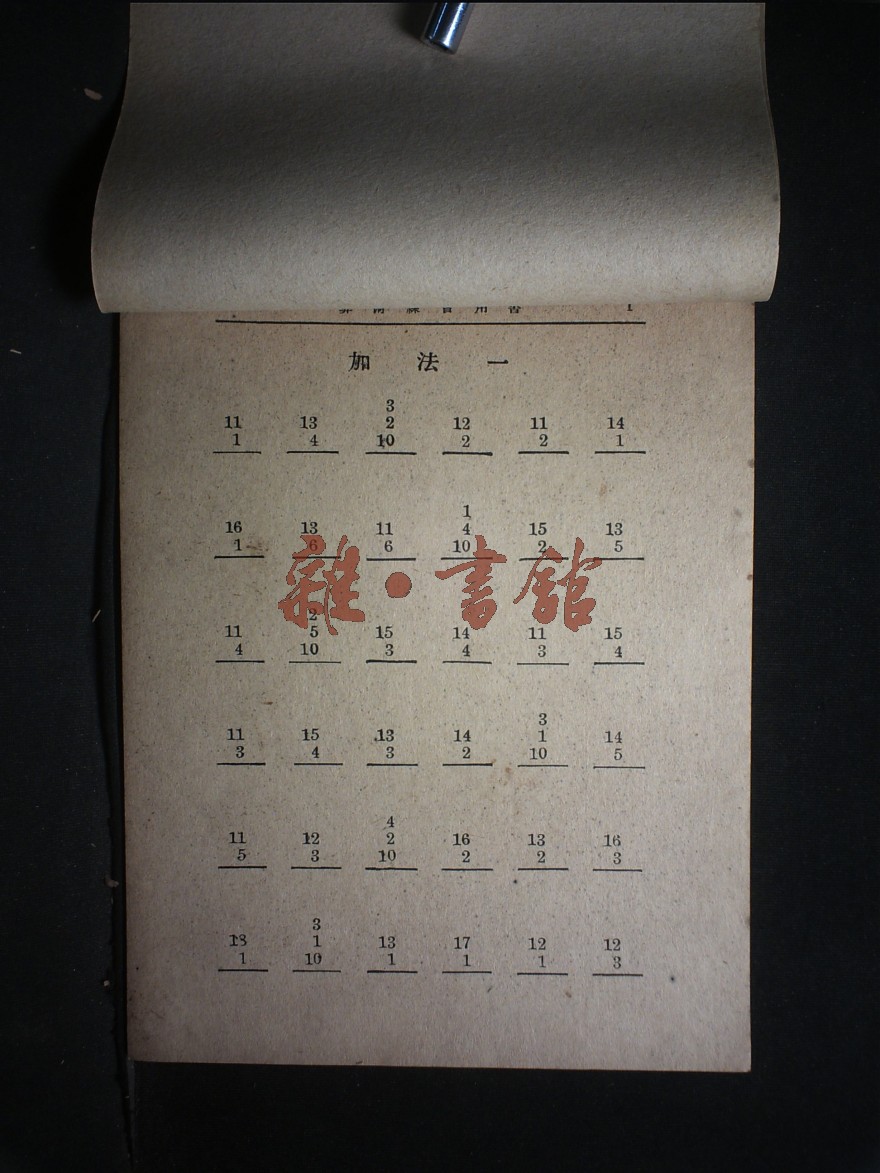 算術練習用書 1
加法一
3
11 13 2 12 11 14
1 4 10 2 2 1
1
16 13 11 4 15 13
1 6 6 10 2 5
雜·書館
2
11 5 15 14 11 15
4 10 3 4 3 4
3
11 15 13 14 1 14
3 4 3 2 10 5
4
11 12 2 16 13 16
5 3 10 2 2 3
3
18 1 13 17 12 12
1 10 1 1 1 3